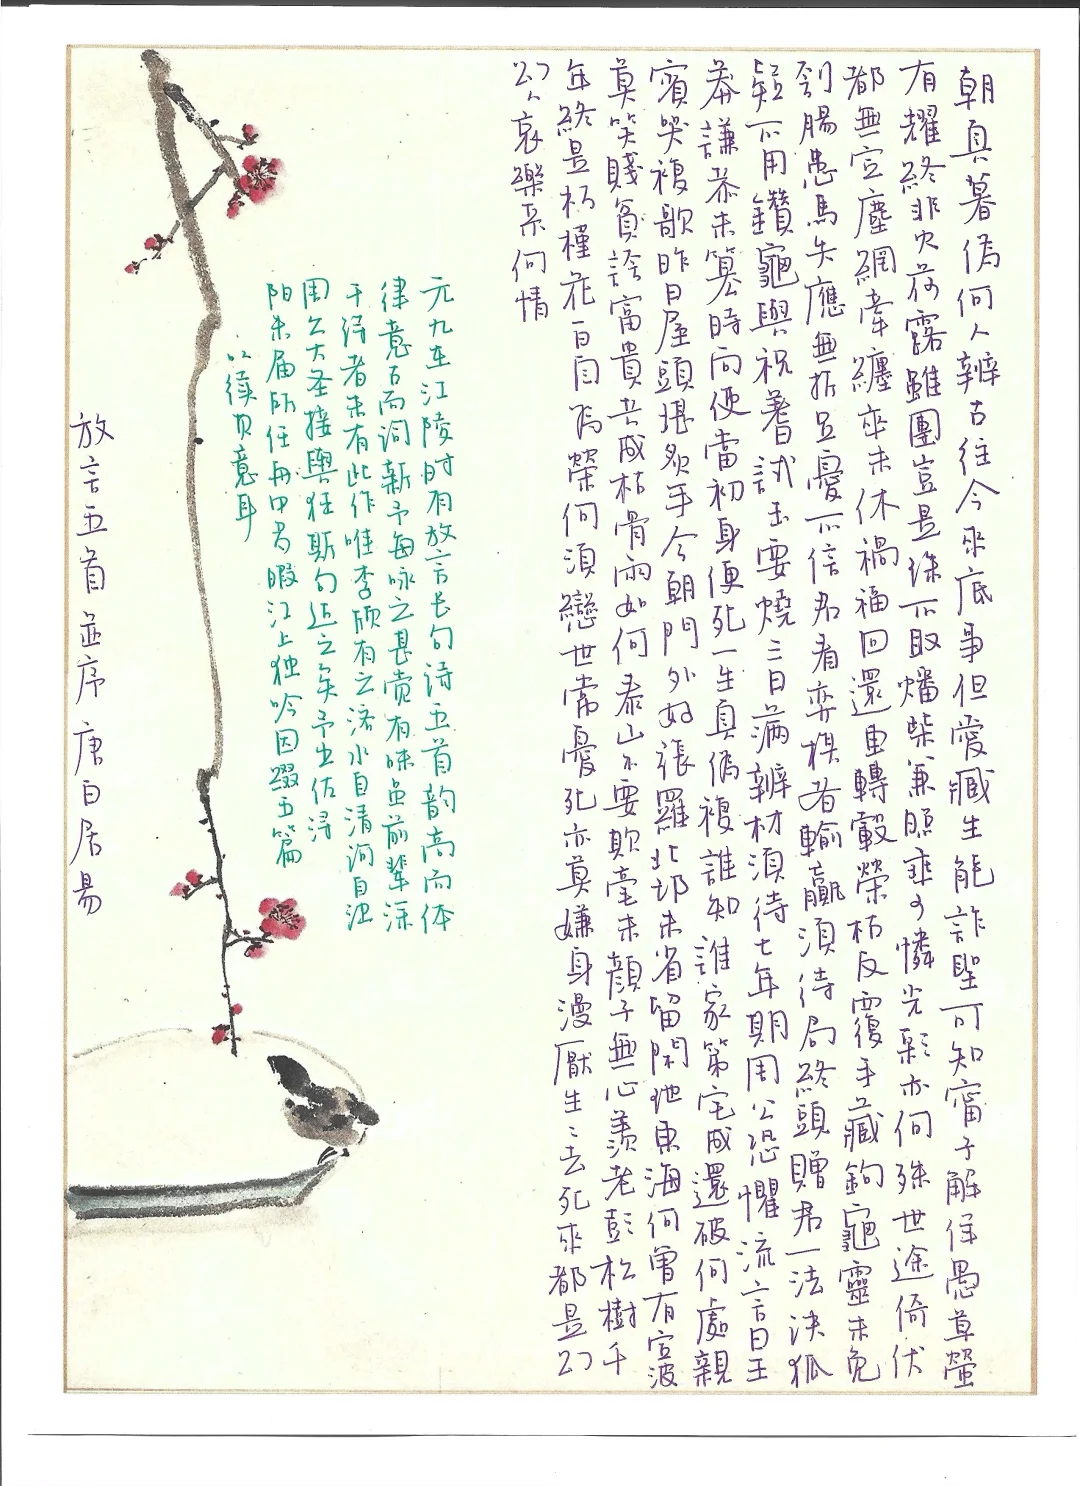 朝真暮偽何人辨古往今來底事但愛臧生能詐聖可知甯子解佯愚草螢
有耀終非火荷露雖團豈是珠不取燔柴兼照乘可憐光彩亦何殊世途倚伏
都無定塵網牽纏卒未休禍福回還車轉轂榮枯反覆手藏鉤龜靈未免
刳腸患馬失應無折足憂不信君看弈棋者輸贏須待局終頭贈君一法決狐
疑不用鑽龜與祝蓍試玉要燒三日滿辨材須待七年期周公恐懼流言日王
莽謙恭未篡時向使當初身便死一生真偽複誰知誰家第宅成還破何處親
賓哭複歌昨日屋頭堪炙手今朝門外好張羅北邙未省留閑地東海何曾有定波
莫笑賤貧誇富貴共成枯骨兩如何泰山不要欺毫末顏子無心羨老彭松樹千
年終是朽槿花一日自為榮何須戀世常憂死亦莫嫌身漫厭生〻去死來都是幻
幻人哀樂系何情
元九在江陵时有放言长句诗五首韵高而体
律意古而词新予每咏之甚觉有味虽前辈深
于诗者未有此作唯李颀有云济水自清河自浊
周公大圣接舆狂斯句近之矣予出佐浔
阳未届所任舟中多暇江上独吟因缀五篇
以续其意耳
放言五首並序 唐白居易